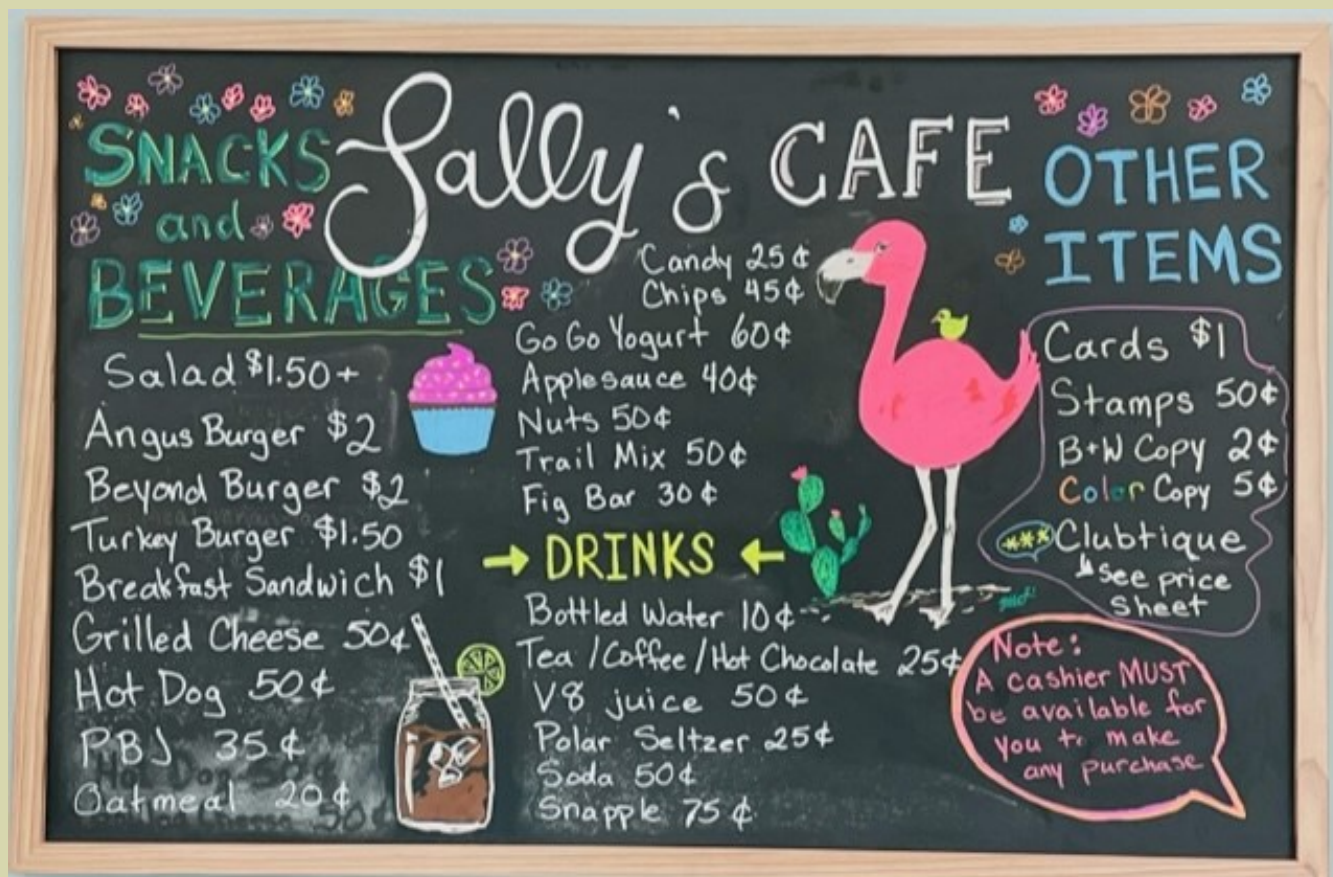 Sally's CAFE
SNACKS
and
BEVERAGES
Salad $1.50+
Angus Burger $2
Beyond Burger $2
Turkey Burger $1.50
Breakfast Sandwich $1
Grilled Cheese 50¢
Hot Dog 50¢
PBJ 35¢
Hot Dog 50¢
Oatmeal 20¢
Cheese 50¢
Candy 25¢
Chips 45¢
Go Go Yogurt 60¢
Applesauce 40¢
Nuts 50¢
Trail Mix 50¢
Fig Bar 30¢
→ DRINKS ←
Bottled Water 10¢
Tea / Coffee / Hot Chocolate 25¢
V8 juice 50¢
Polar Seltzer 25¢
Soda 50¢
Snapple 75¢
OTHER
ITEMS
Cards $1
Stamps 50¢
B+W Copy 2¢
Color Copy 5¢
*** Clubtique
see price
sheet
Note:
A cashier MUST
be available for
you to make
any purchase